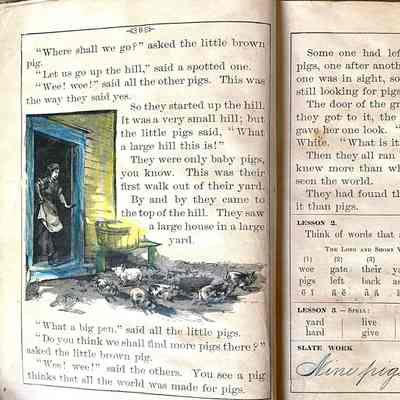 8
"Where shall we go?" asked the little brown
pig.
"Let us go up the hill," said a spotted one.
"Wee! wee!" said all the other pigs. This was
the way they said yes.
So they started up the hill.
It was a very small hill; but
the little pigs said, "What
a large hill this is!"
They were only baby pigs,
you know. This was their
first walk out of their yard.
By and by they came to
the top of the hill. They saw
a large house in a large
yard.
"What a big pen." said all the little pigs.
"Do you think we shall find more pigs there?"
asked the little brown pig.
"Wee! wee!" said the others. You see a pig
thinks that all the world was made for pigs.
Some one had left
pigs, one after anoth
one was in sight, so
still looking for pigs
The door of the gr
they got to it, the
gave her one look. "
White. "What is it
Then they all ran
knew more than wh
seen the world.
They had found th
it than pigs.
LESSON 2.
Think of words that
THE LONG AND SHORT V
(1) (2) (3)
wee gate their
pigs left back as
LESSON 3.—SPELL:
yard live
hard give
SLATE WORK
Nine pig